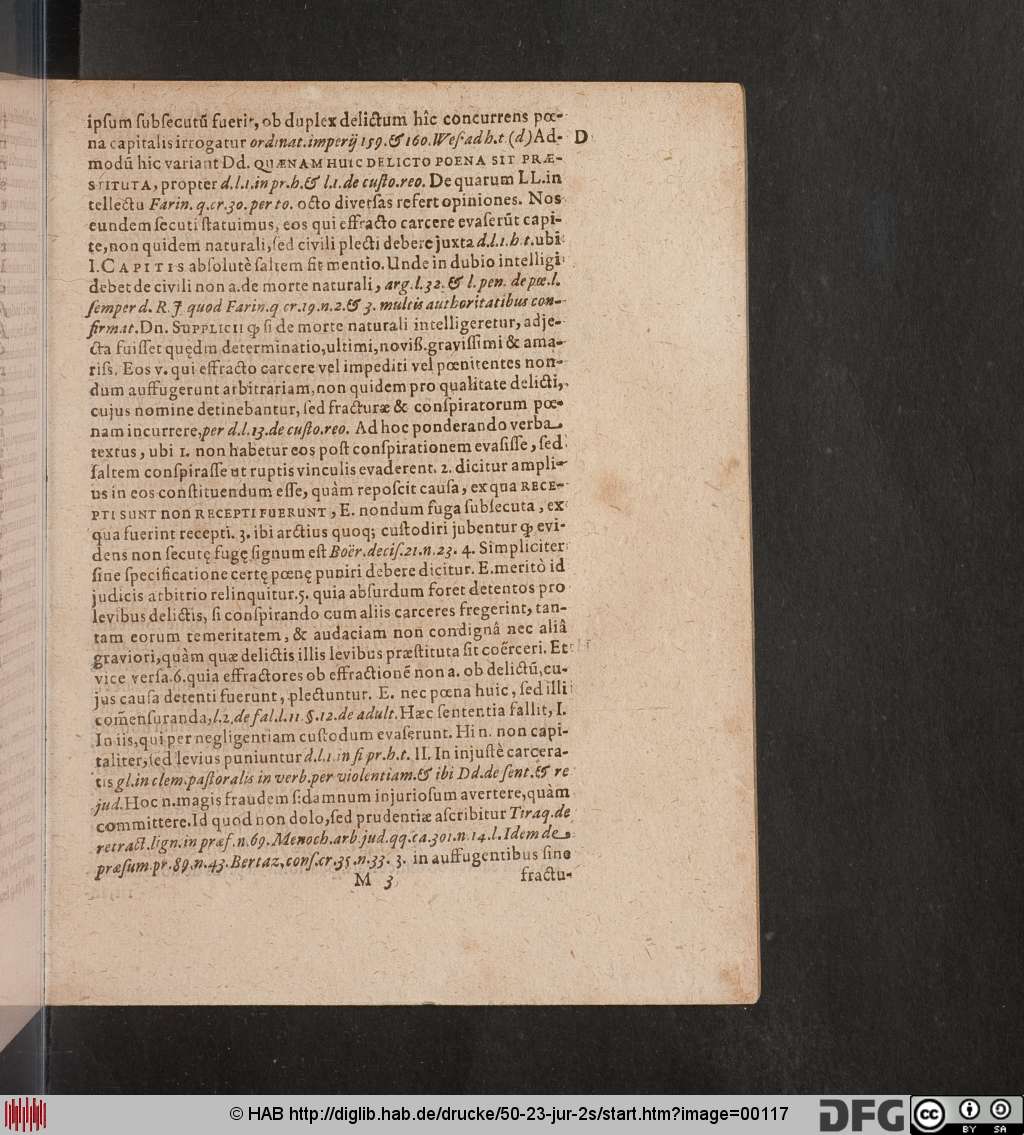 ipſum ſubſecutū fuerit, ob duplex delictum hîc concurrens pœ-
na capitalis irrogatur ordinat. imperij 159. & 160. Weſ. ad h. t. (d) Ad- D
modū hic variant Dd. QUÆNAM HUIC DELICTO POENA SIT PRÆ-
STITUTA, propter d. l. 1. in pr. h. & l. 1. de cuſto. reo. De quarum LL. in
tellectu Farin. q. cr. 30. per to. octo diverſas refert opiniones. Nos
eundem ſecuti ſtatuimus, eos qui effracto carcere evaſerūt capi-
te, non quidem naturali, ſed civili plecti debere juxta d. l. 1. h. t. ubi
I. CAPITIS abſolutè ſaltem fit mentio. Unde in dubio intelligi
debet de civili non a. de morte naturali, arg. l. 32. & l. pen. de pœ. l.
ſemper d. R. J quod Farin. q cr. 19. n. 2. & 3. multis authoritatibus con-
firmat. Dn. SUPPLICII ꝙ ſi de morte naturali intelligeretur, adje-
cta fuiſſet quędm determinatio, ultimi, noviß. graviſſimi & ama-
riſs. Eos v. qui effracto carcere vel impediti vel pœnitentes non-
dum auffugerunt arbitrariam, non quidem pro qualitate delicti,
cujus nomine detinebantur, ſed fracturæ & conſpiratorum pœ-
nam incurrere, per d. l. 13. de cuſto. reo. Ad hoc ponderando verba
textus, ubi 1. non habetur eos poſt conſpirationem evaſiſſe, ſed
ſaltem conſpiraſſe ut ruptis vinculis evaderent. 2. dicitur ampli-
us in eos conſtituendum eſſe, quàm repoſcit cauſa, ex qua RECE-
PTI SUNT non RECEPTI FUERUNT, E. nondum fuga ſubſecuta, ex
qua fuerint recepti. 3. ibi arctius quoq; cuſtodiri jubentur ꝙ evi-
dens non ſecutę fugę ſignum eſt Boër. deciſ. 21. n. 23. 4. Simpliciter
ſine ſpecificatione certę pœnę puniri debere dicitur. E. meritò id
judicis arbitrio relinquitur. 5. quia abſurdum foret detentos pro
levibus delictis, ſi conſpirando cum aliis carceres fregerint, tan-
tam eorum temeritatem, & audaciam non condignâ nec aliâ
graviori, quàm quæ delictis illis levibus præſtituta ſit coërceri. Et
vice verſa. 6. quia effractores ob effractionē non a. ob delictū, cu-
jus cauſa detenti fuerunt, plectuntur. E. nec pœna huic, ſed illi
com̄enſuranda, l. 2. de fal. l. 11 §. 12. de adult. Hæc ſententia fallit, I.
In iis, qui per negligentiam cuſtodum evaſerunt. Hi n. non capi-
taliter, ſed levius puniuntur d. l. 1. in fi pr. h. t. II. In injuſtè carcera-
tis gl. in clem. paſtoralis in verb. per violentiam. & ibi Dd. de ſent. & re
jud. Hoc n. magis fraudem ſ: damnum injurioſum avertere, quàm
committere. Id quod non dolo, ſed prudentiæ aſcribitur Tiraq. de
retract. lign. in præf. n. 69. Menoch. arb. jud. qq. ca. 301. n. 14. l. Idem de
præſum. pr. 89. n. 43. Bertaz, conſ. cr. 35. n. 33. 3. in auffugentibus ſine
M 3 fractu-
© HAB http://diglib.hab.de/drucke/50-23-jur-2s/start.htm?image=00117 DFG cc BY SA